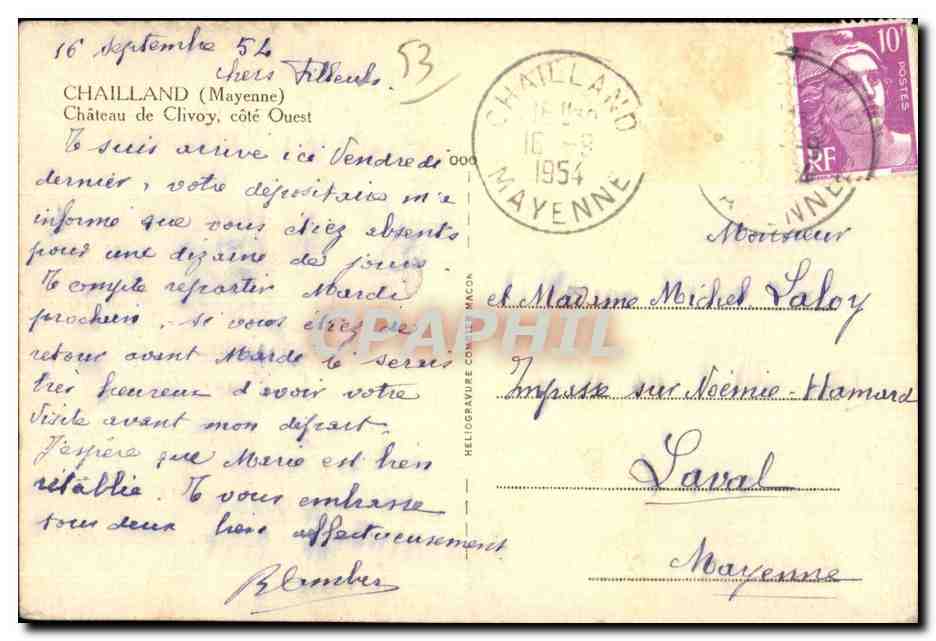 16 septembre 54
53
chers Filleuls.
CHAILLAND (Mayenne)
Château de Clivoy, côté Ouest
suis arrivé ici Vendredi
dernier, votre dépositaire m'a
informé que vous étiez absents
pour une dizaine de jours.
compte repartir Mardi
prochain, si vous êtes de
retour avant Mardi serais
très heureux d'avoir votre
visite avant mon départ.
J'espère que Marie est bien
rétablie. vous embrasse
tous deux bien affectueusement
CHAILLAND
16 -9
1954
MAYENNE
10F
POSTES
RF
HELIOGRAVURE COMBIER MACON
CPAPHIL
Monsieur
et Madame Michel Laloy
Impasse sur Noémie-Hamard
Laval
Mayenne